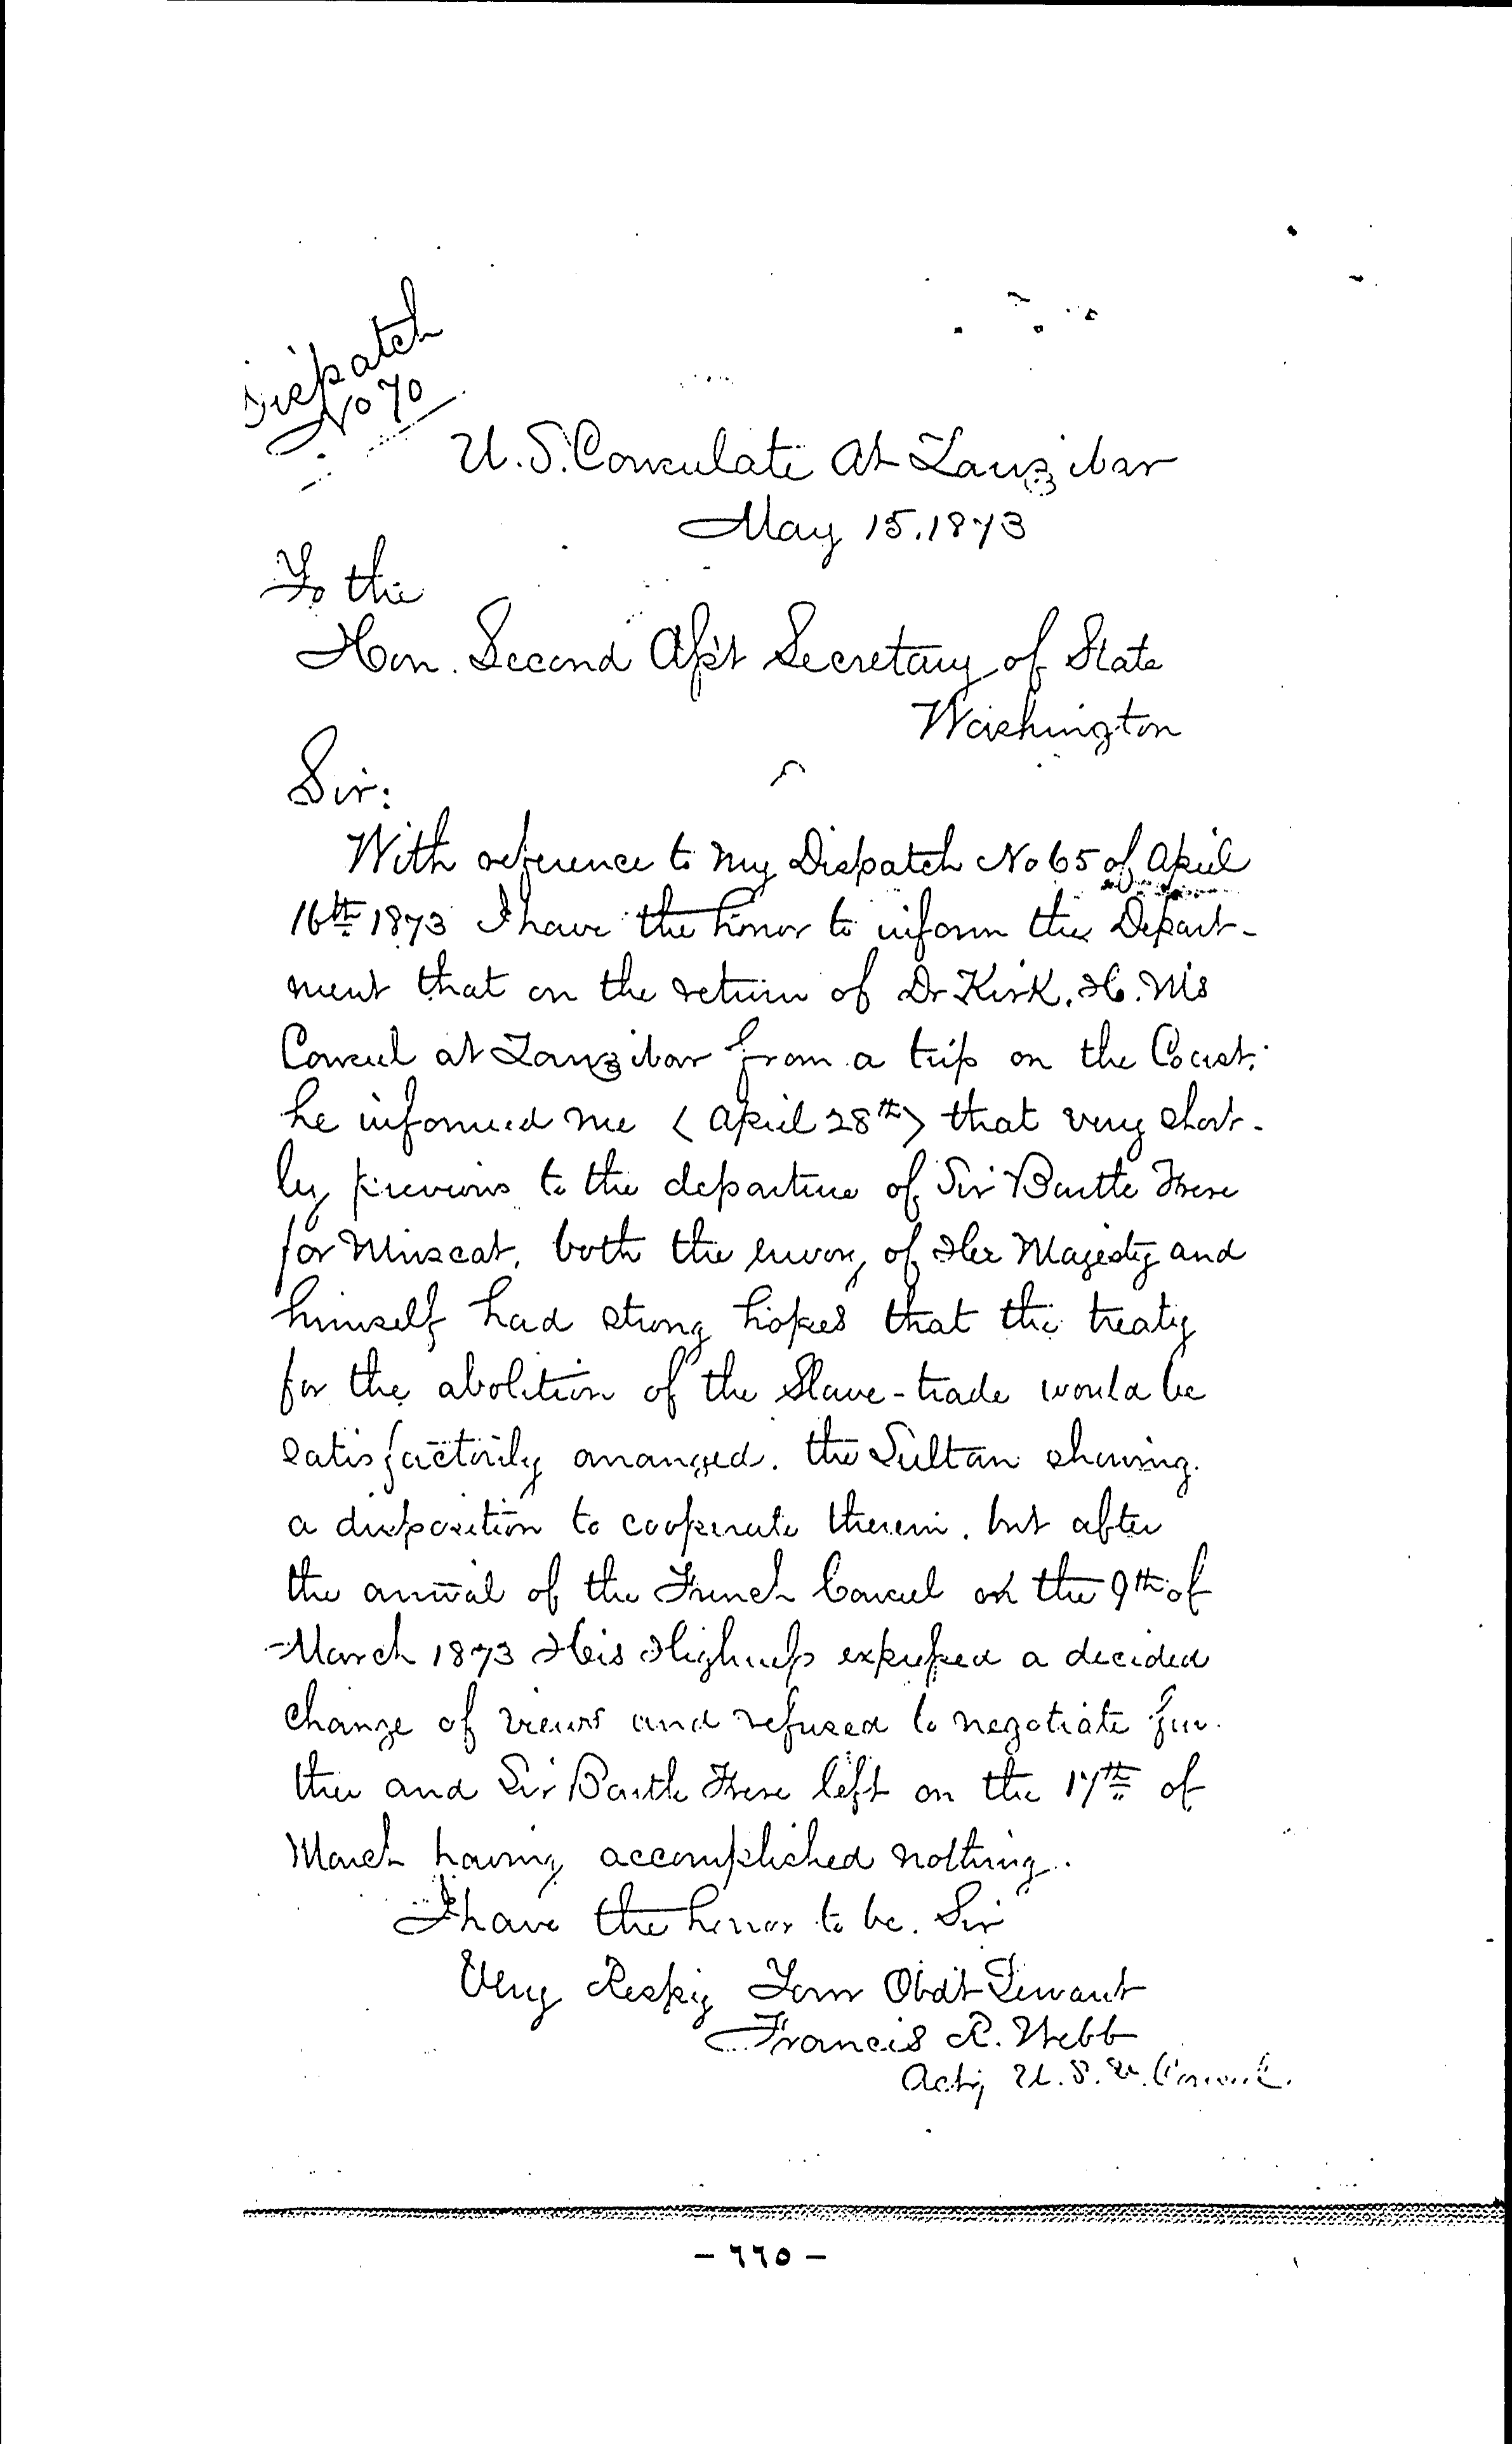 Dispatch
No 70
U.S. Consulate at Zanzibar
May 15. 1873
To the
Hon. Second Ass't Secretary of State
Washington
Sir:
With reference to my Dispatch No 65 of April
16th 1873 I have the honor to inform the Depart-
ment that on the return of Dr Kirk, H. M's
Consul at Zanzibar from a trip on the Coast,
he informed me (April 28th) that very short-
ly previous to the departure of Sir Bartle Frere
for Muscat, both the envoy of Her Majesty and
himself had strong hopes that the treaty
for the abolition of the Slave-trade would be
satisfactorily arranged. the Sultan showing
a disposition to cooperate therein, but after
the arrival of the French Consul on the 9th of
March 1873 His Highness expressed a decided
change of views and refused to negotiate fur-
ther and Sir Bartle Frere left on the 17th of
March having accomplished nothing.
I have the honor to be. Sir
Very Respy Your Obdt Servant
Francis R. Webb
Actg U.S. V. Consul.
- ٦٦٥ -